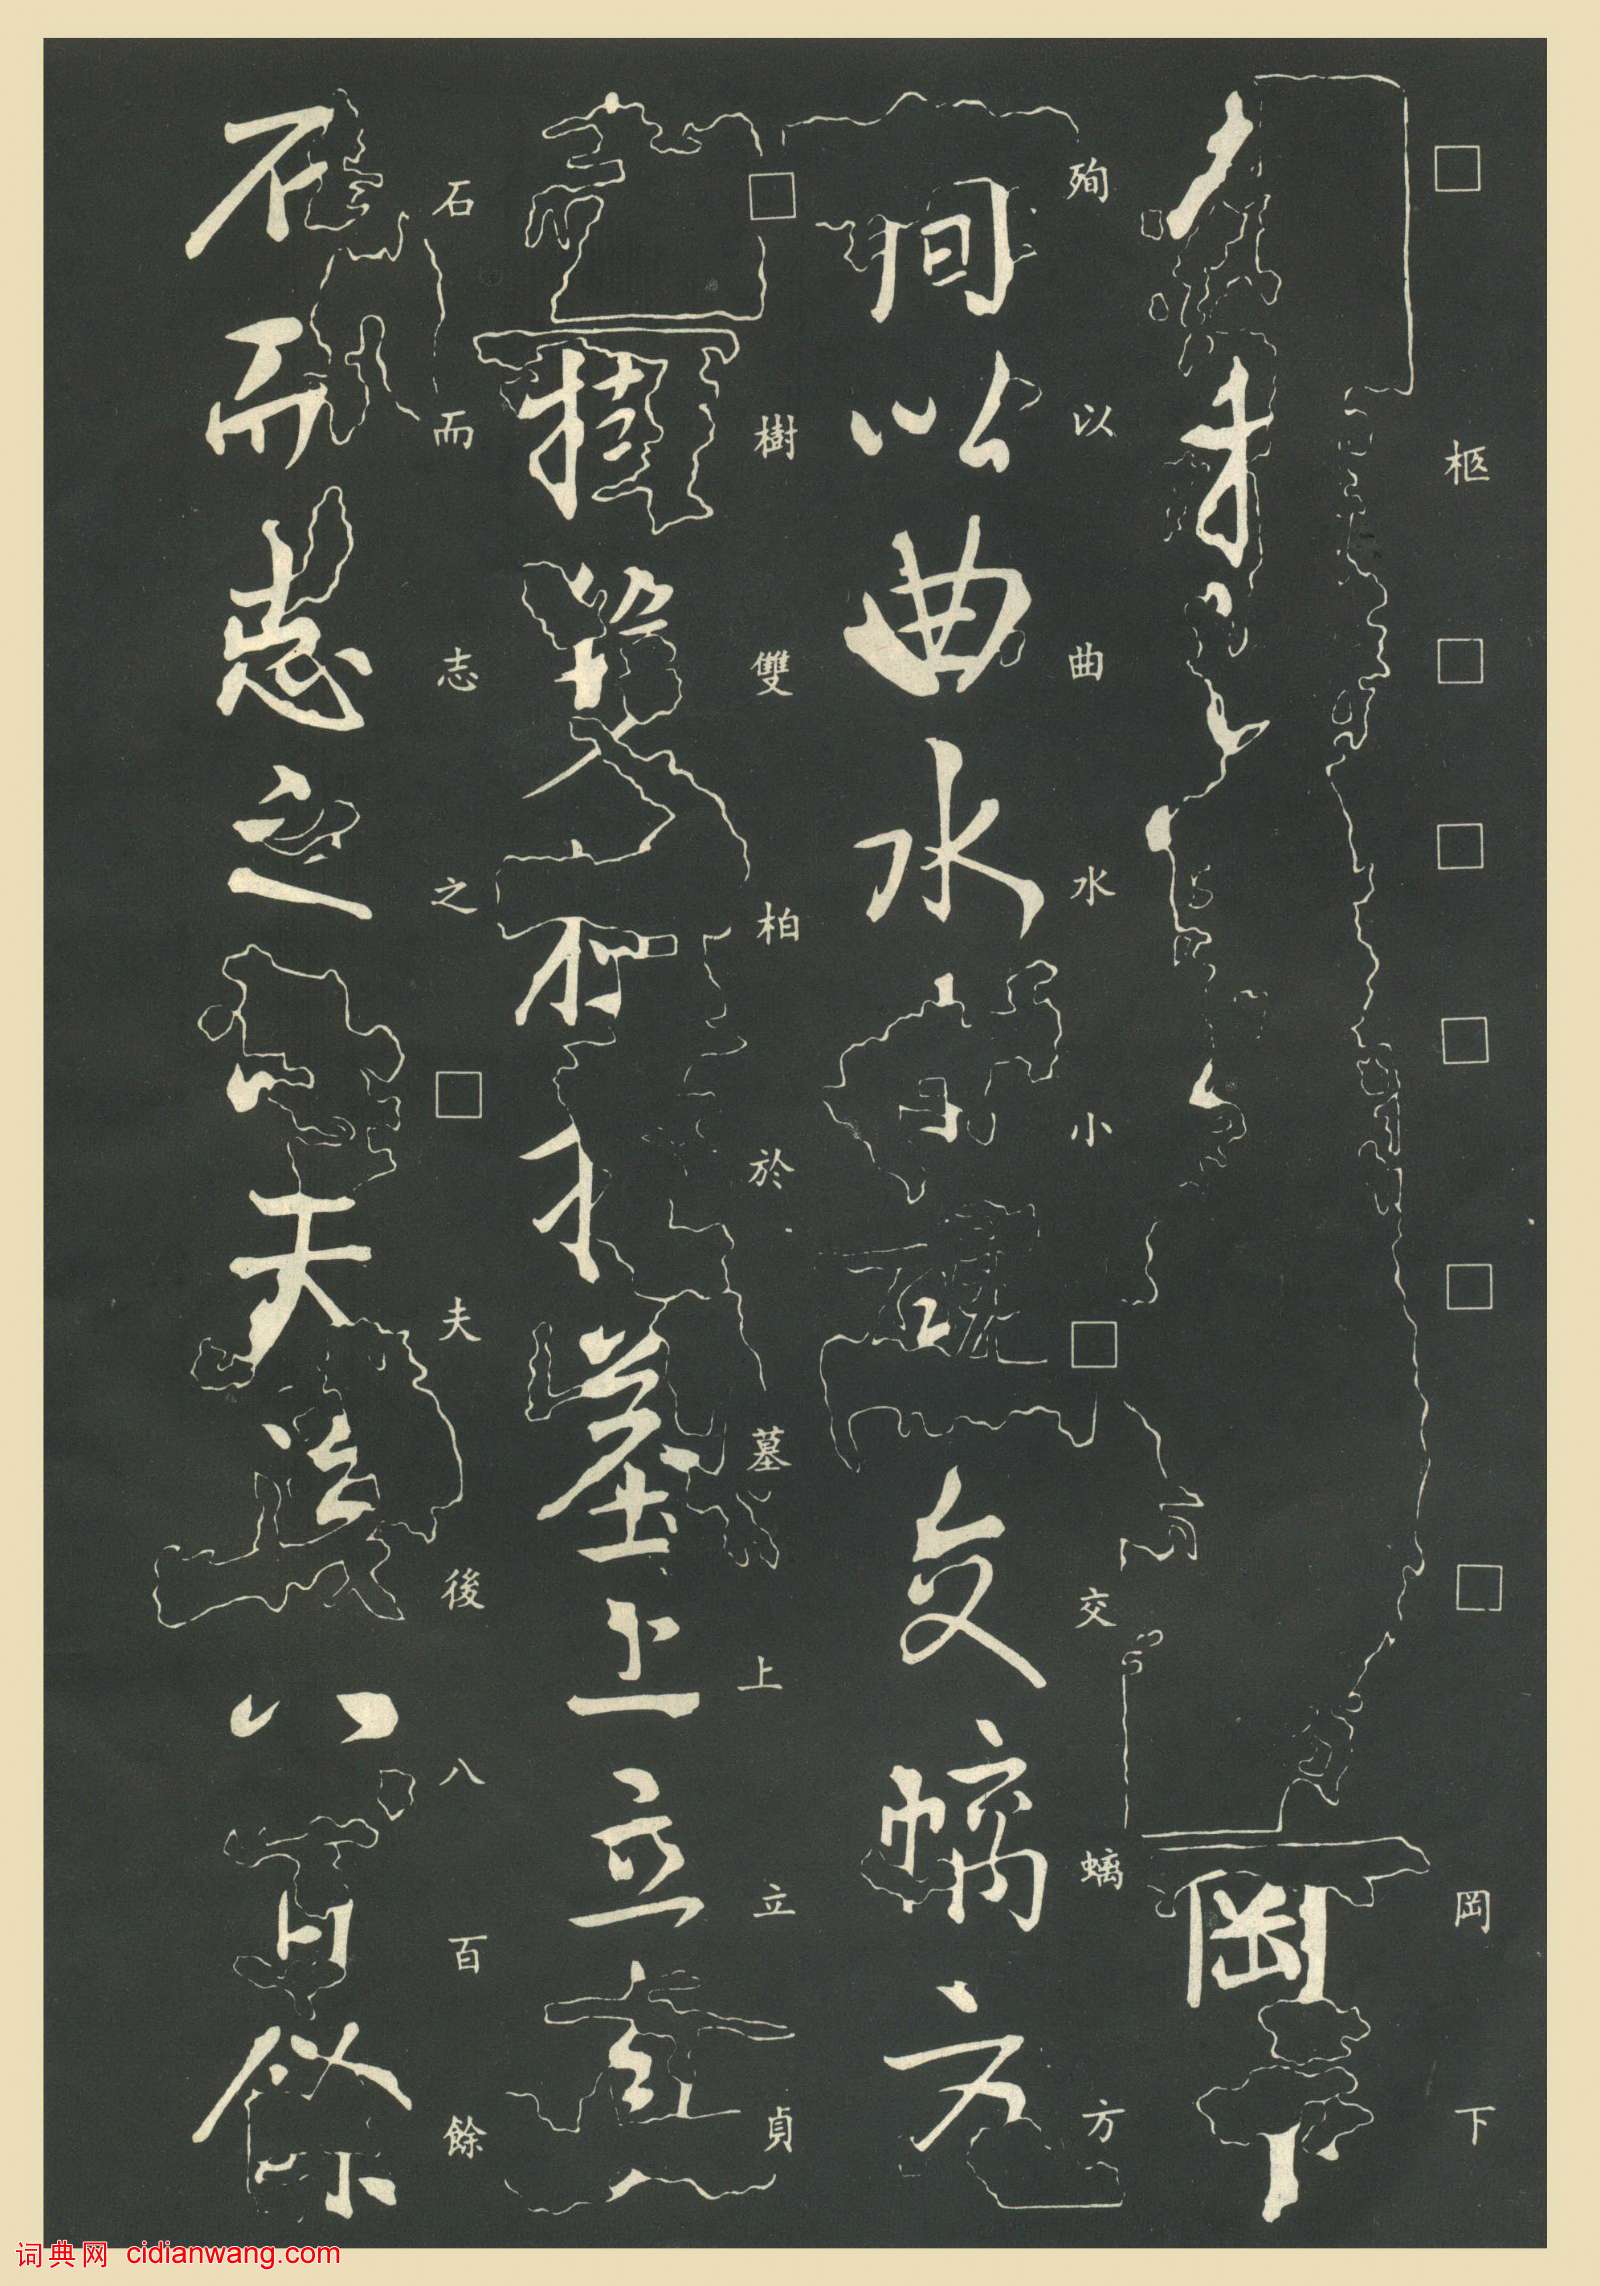 □柩□□□□□岡下
殉以曲水小□交螭方
□樹雙柏於墓上立貞
石而志之□夫後八百餘
词典网 cidianwang.com